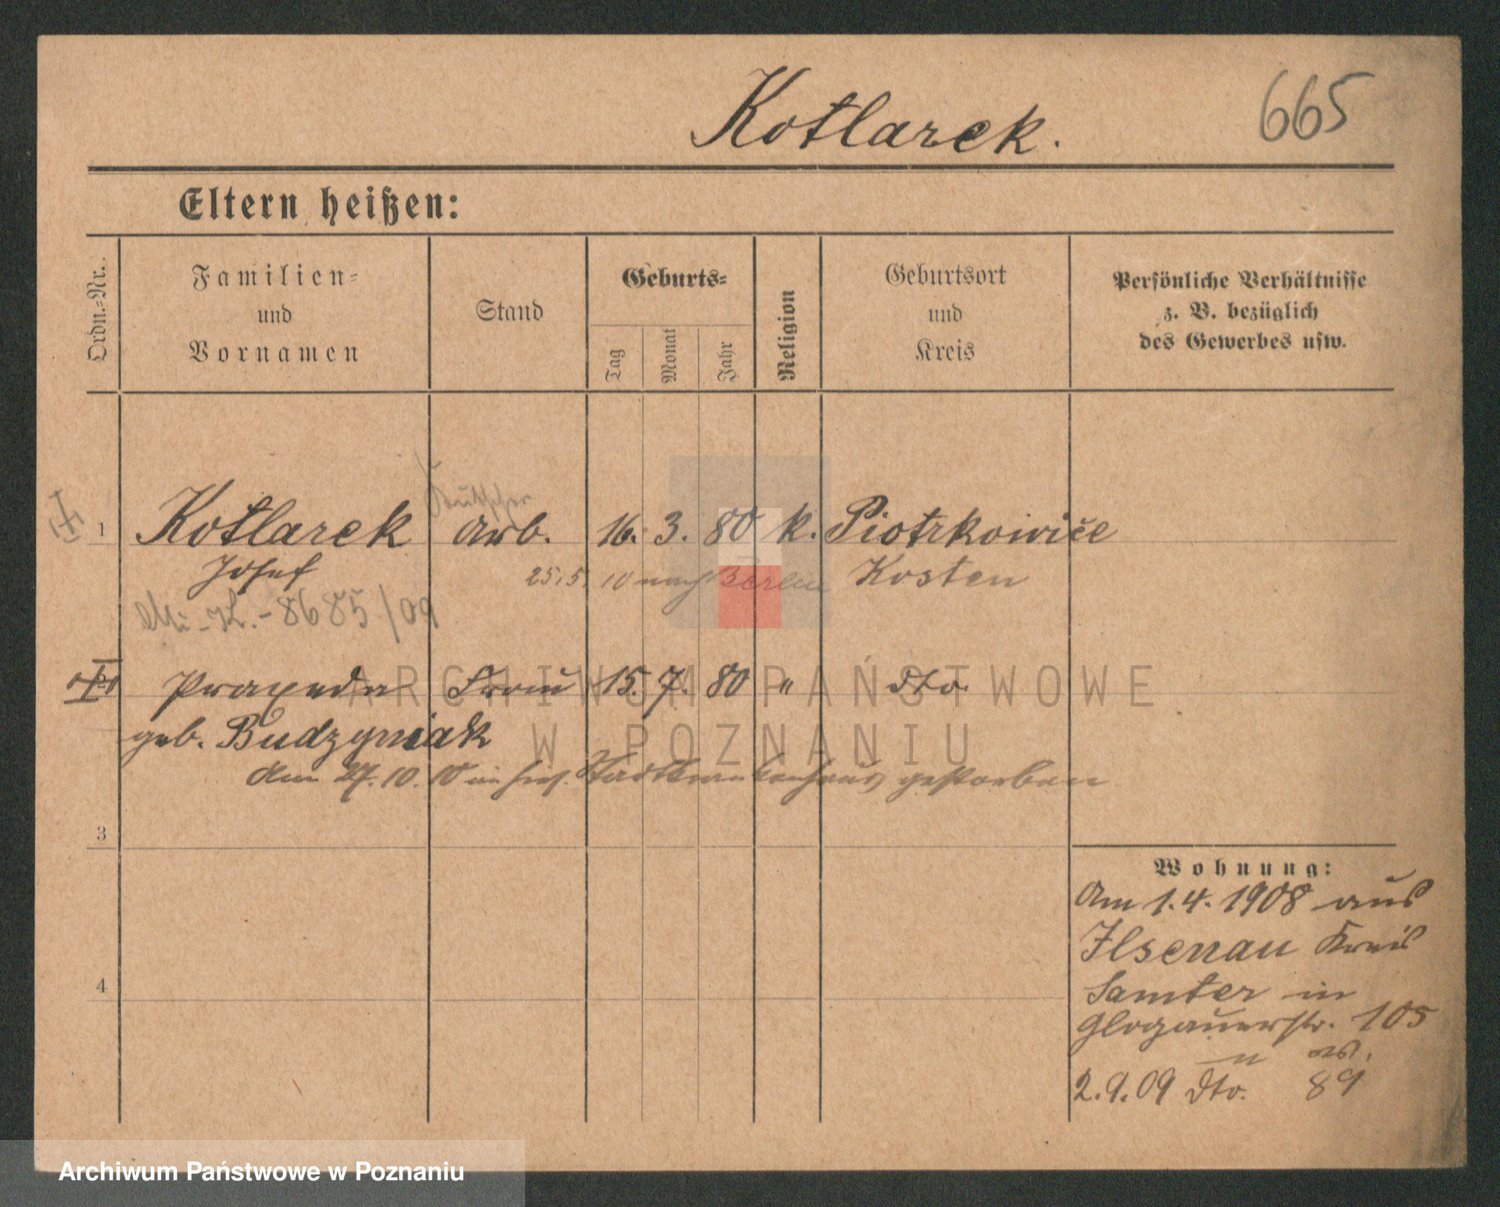 Kotlarek. 665
Eltern heißen:
Ordn.=Nr.
Familien=
und
Vornamen
Stand
Geburts=
Tag
Monat
Jahr
Religion
Geburtsort
und
Kreis
Persönliche Verhältnisse
z. B. bezüglich
des Gewerbes usw.
Deutscher
1 Kotlarek Arb. 16. 3. 80 k. Piotrkowice
Josef 25.5.10 nach Berlin Kosten
8685/09
Praxeda Frau 15. 7. 80 " dto.
geb. Budzyniak
Am 27.10.10 im hies. Stadtkrankenhaus gestorben
3
4
Wohnung:
Am 1.4.1908 aus
Ilsenau Kreis
Samter in
Glogauerstr. 105
2.9.09 dto. 89
ARCHIWUM PAŃSTWOWE
W POZNANIU
Archiwum Państwowe w Poznaniu